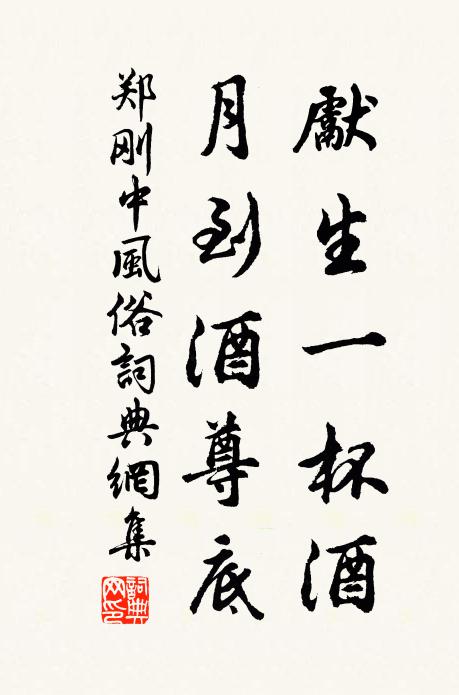 獻生一杯酒
月到酒尊底
郑刚中風俗詞典網集
詞典網印